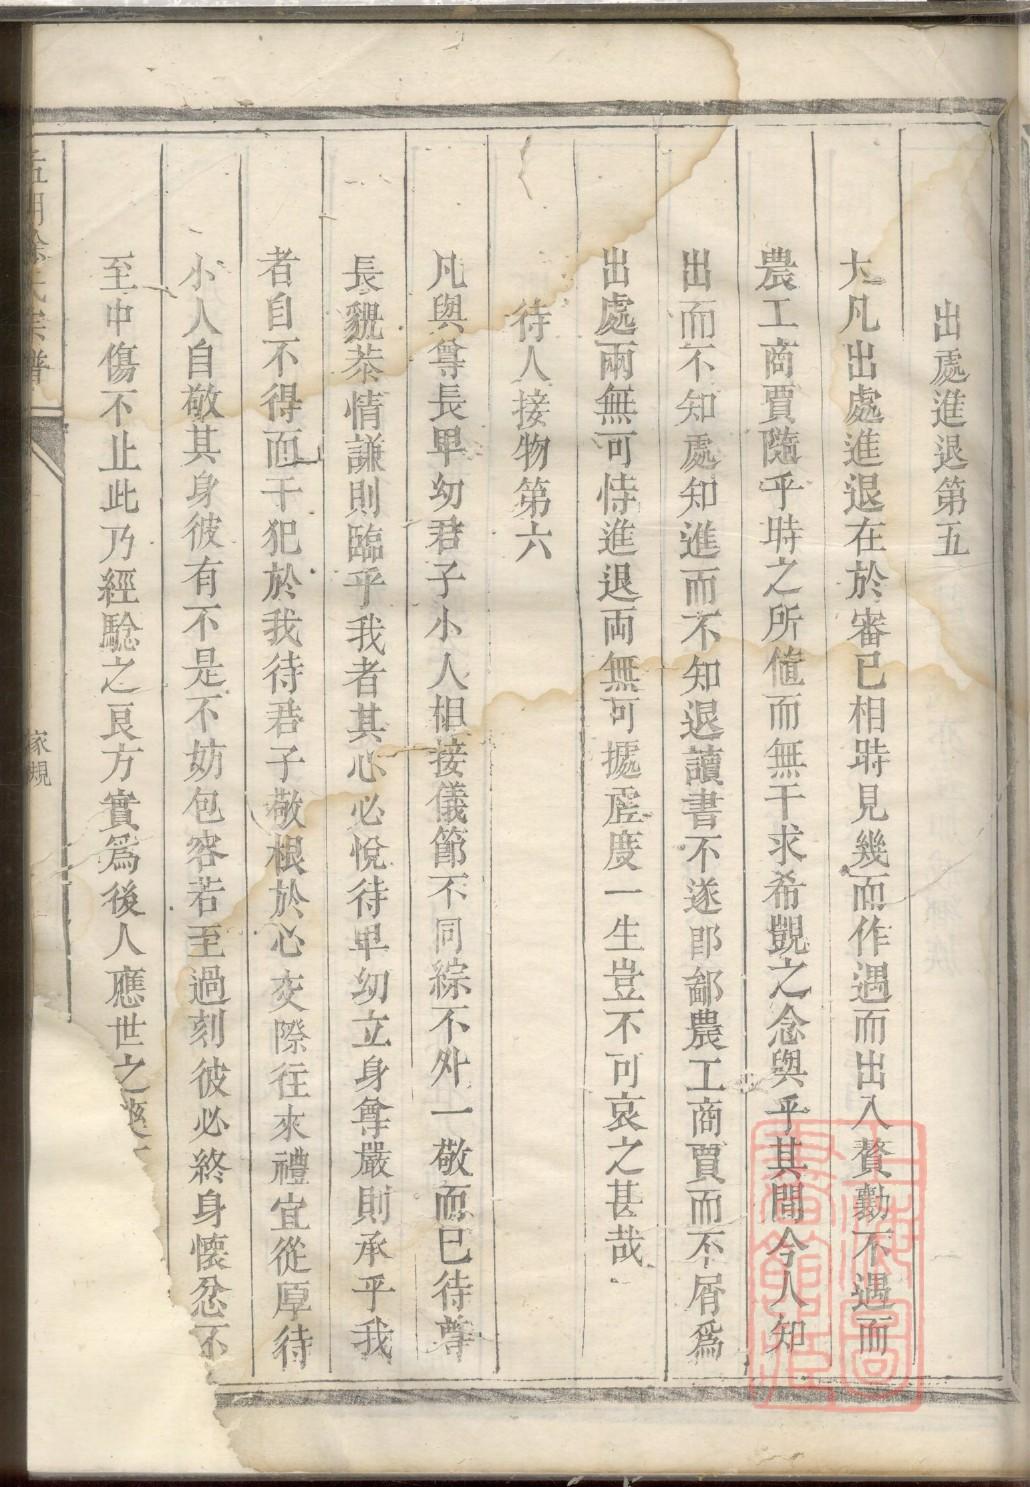 出處進退第五
大凡出處進退在於審已相時見幾而作遇而出入贅勷不遇而
農工商賈隨乎時之所値而無干求希覬之念與乎其間今人知
出而不知處知進而不知退讀書不遂郎鄙農工商賈而不屑爲
出處兩無可恃進退両無可據虚度一生豈不可哀之甚哉
待人接物第六
凡與尊長卑幼君子小人相接儀節不同綜不外一敬而已待尊
長貌恭情謙則臨乎我者其心必悅待卑幼立身尊嚴則承乎我
者自不得而干犯於我待君子敬根於心交際往來禮宜從厚待
小人自敬其身彼有不是不妨包容若至過刻彼必終身懷忿不
至中傷不止此乃經驗之良方實爲後人應世之
氏宗譜
家規
上海圖書館藏